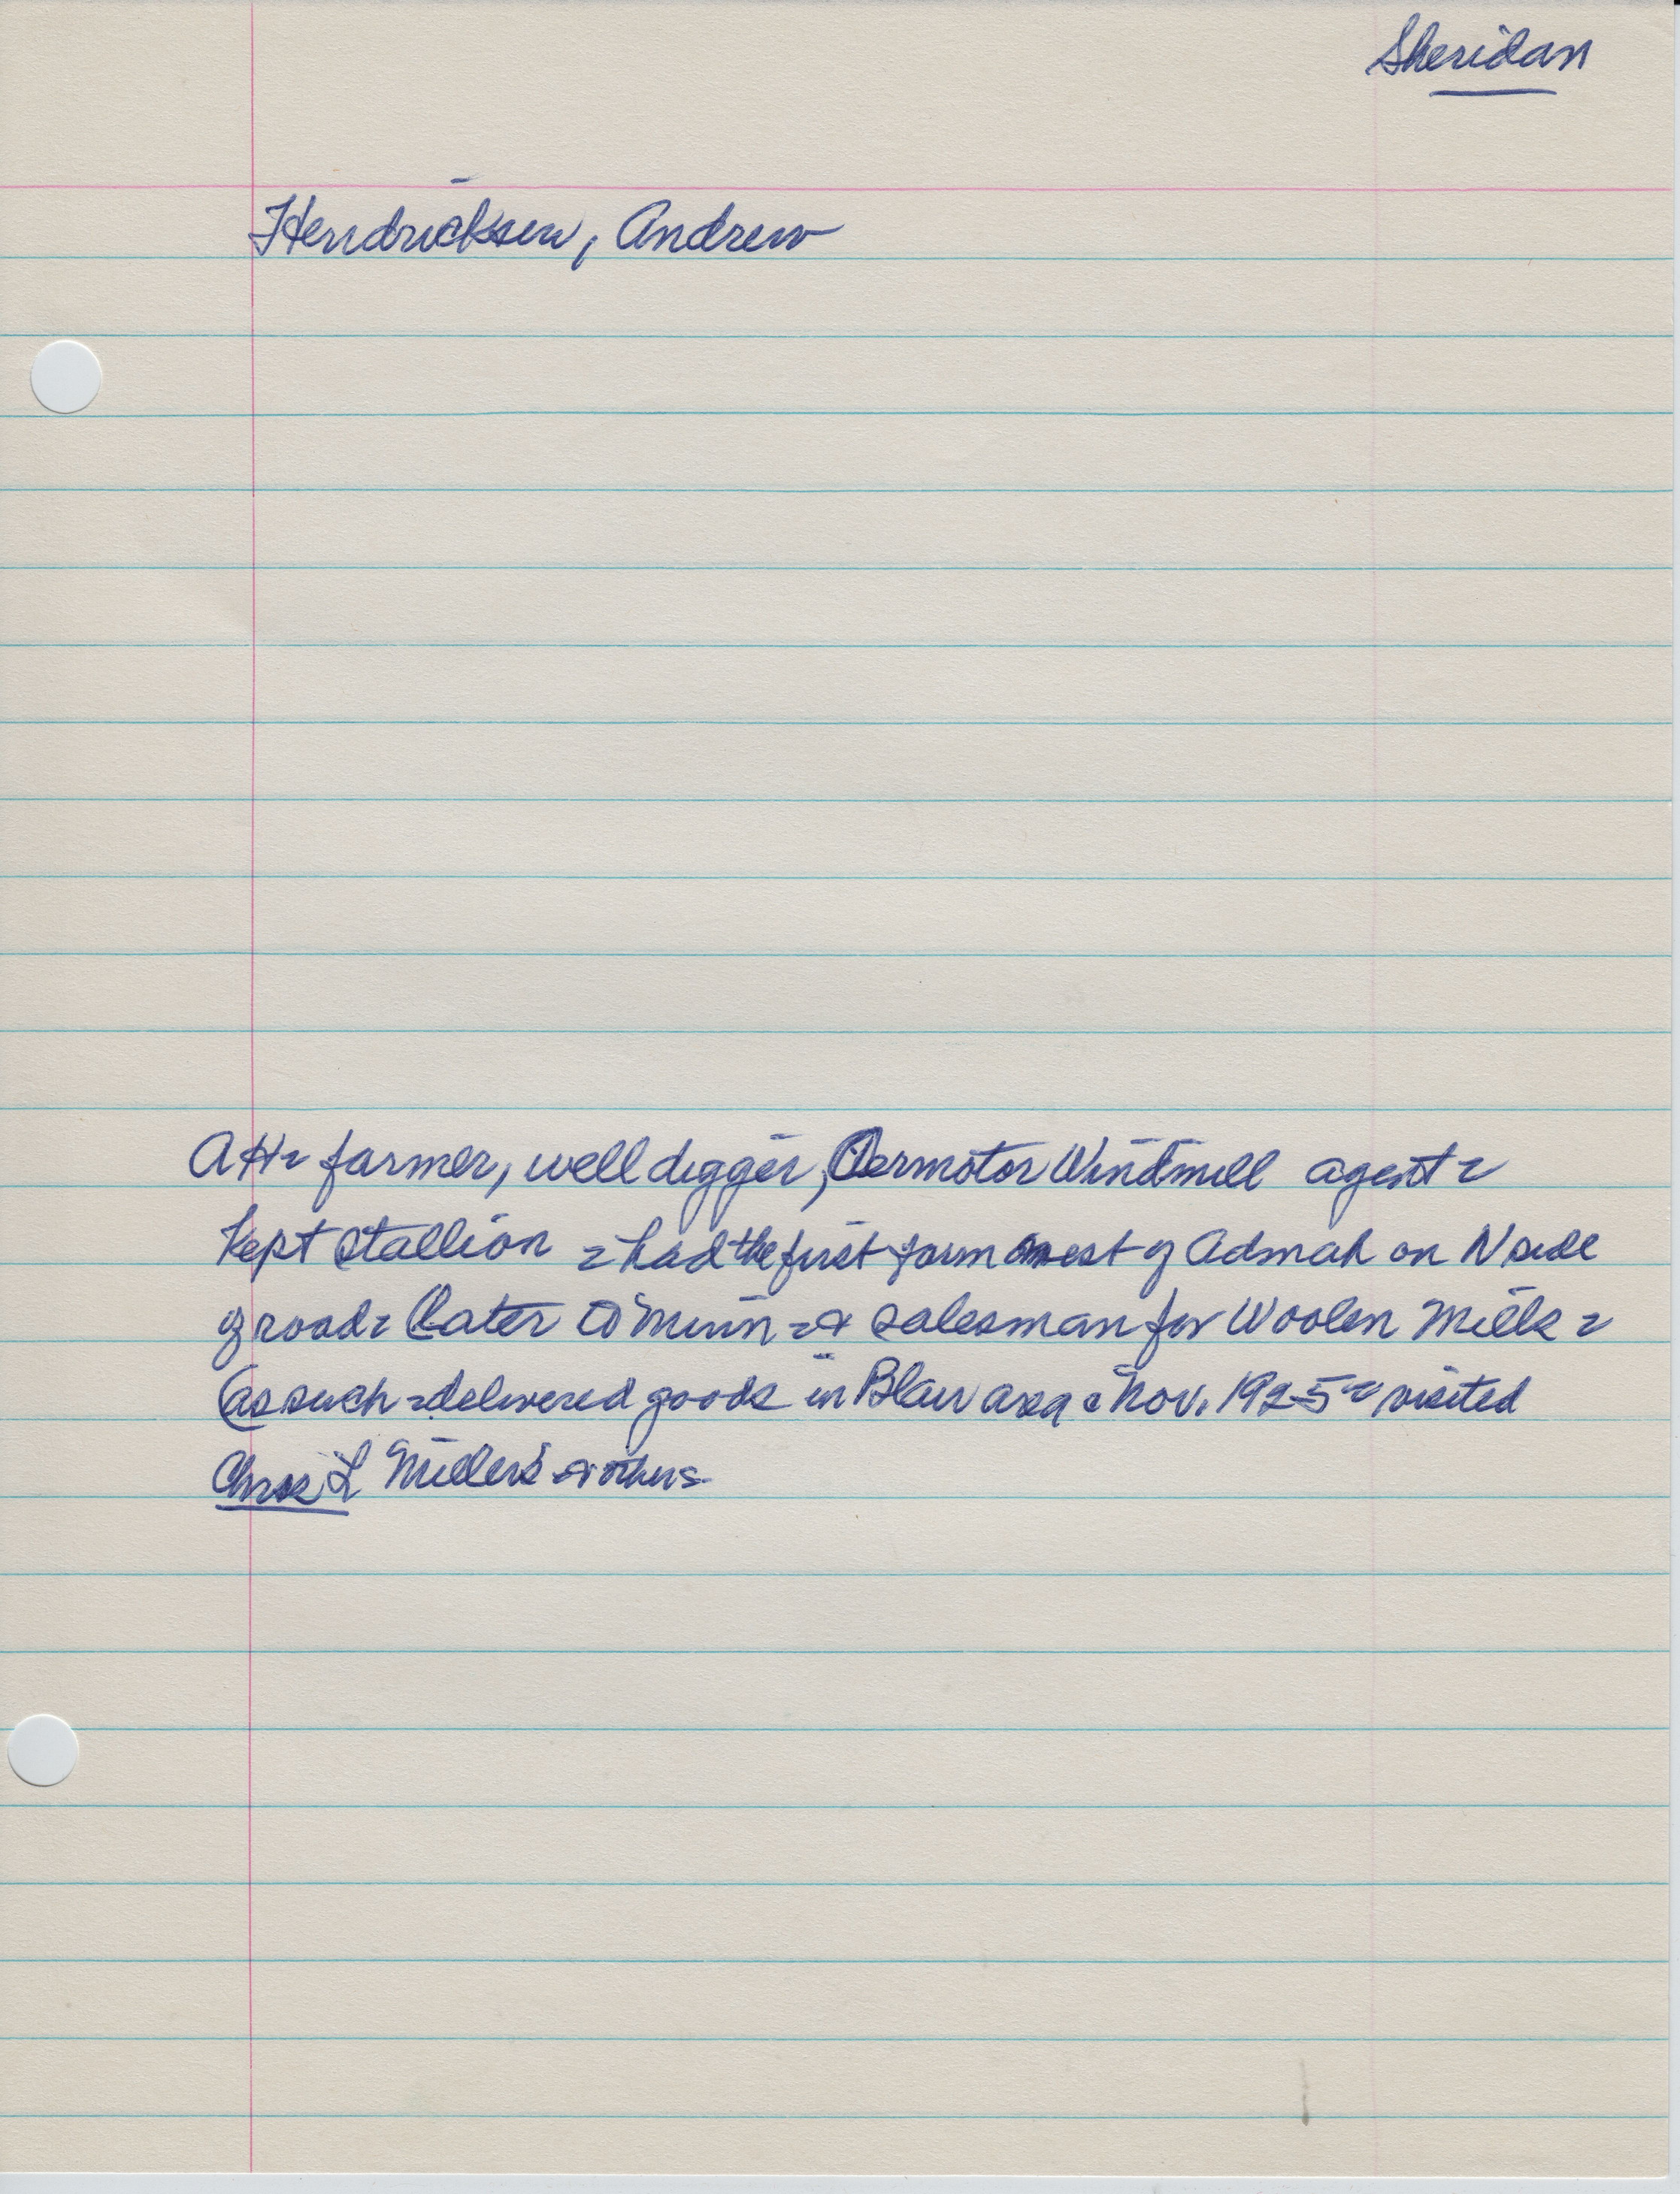 Sheridan
Hendricksen, Andrew
AH - farmer, well digger, Aermotor Windmill agent -
Kept stallion - had the first farm west of Admah on N side
of road - Later to Minn - a salesman for Woolen Mills -
(as such - delivered goods in Blair area - Nov. 1925 - visited
Chras L Miller's & others